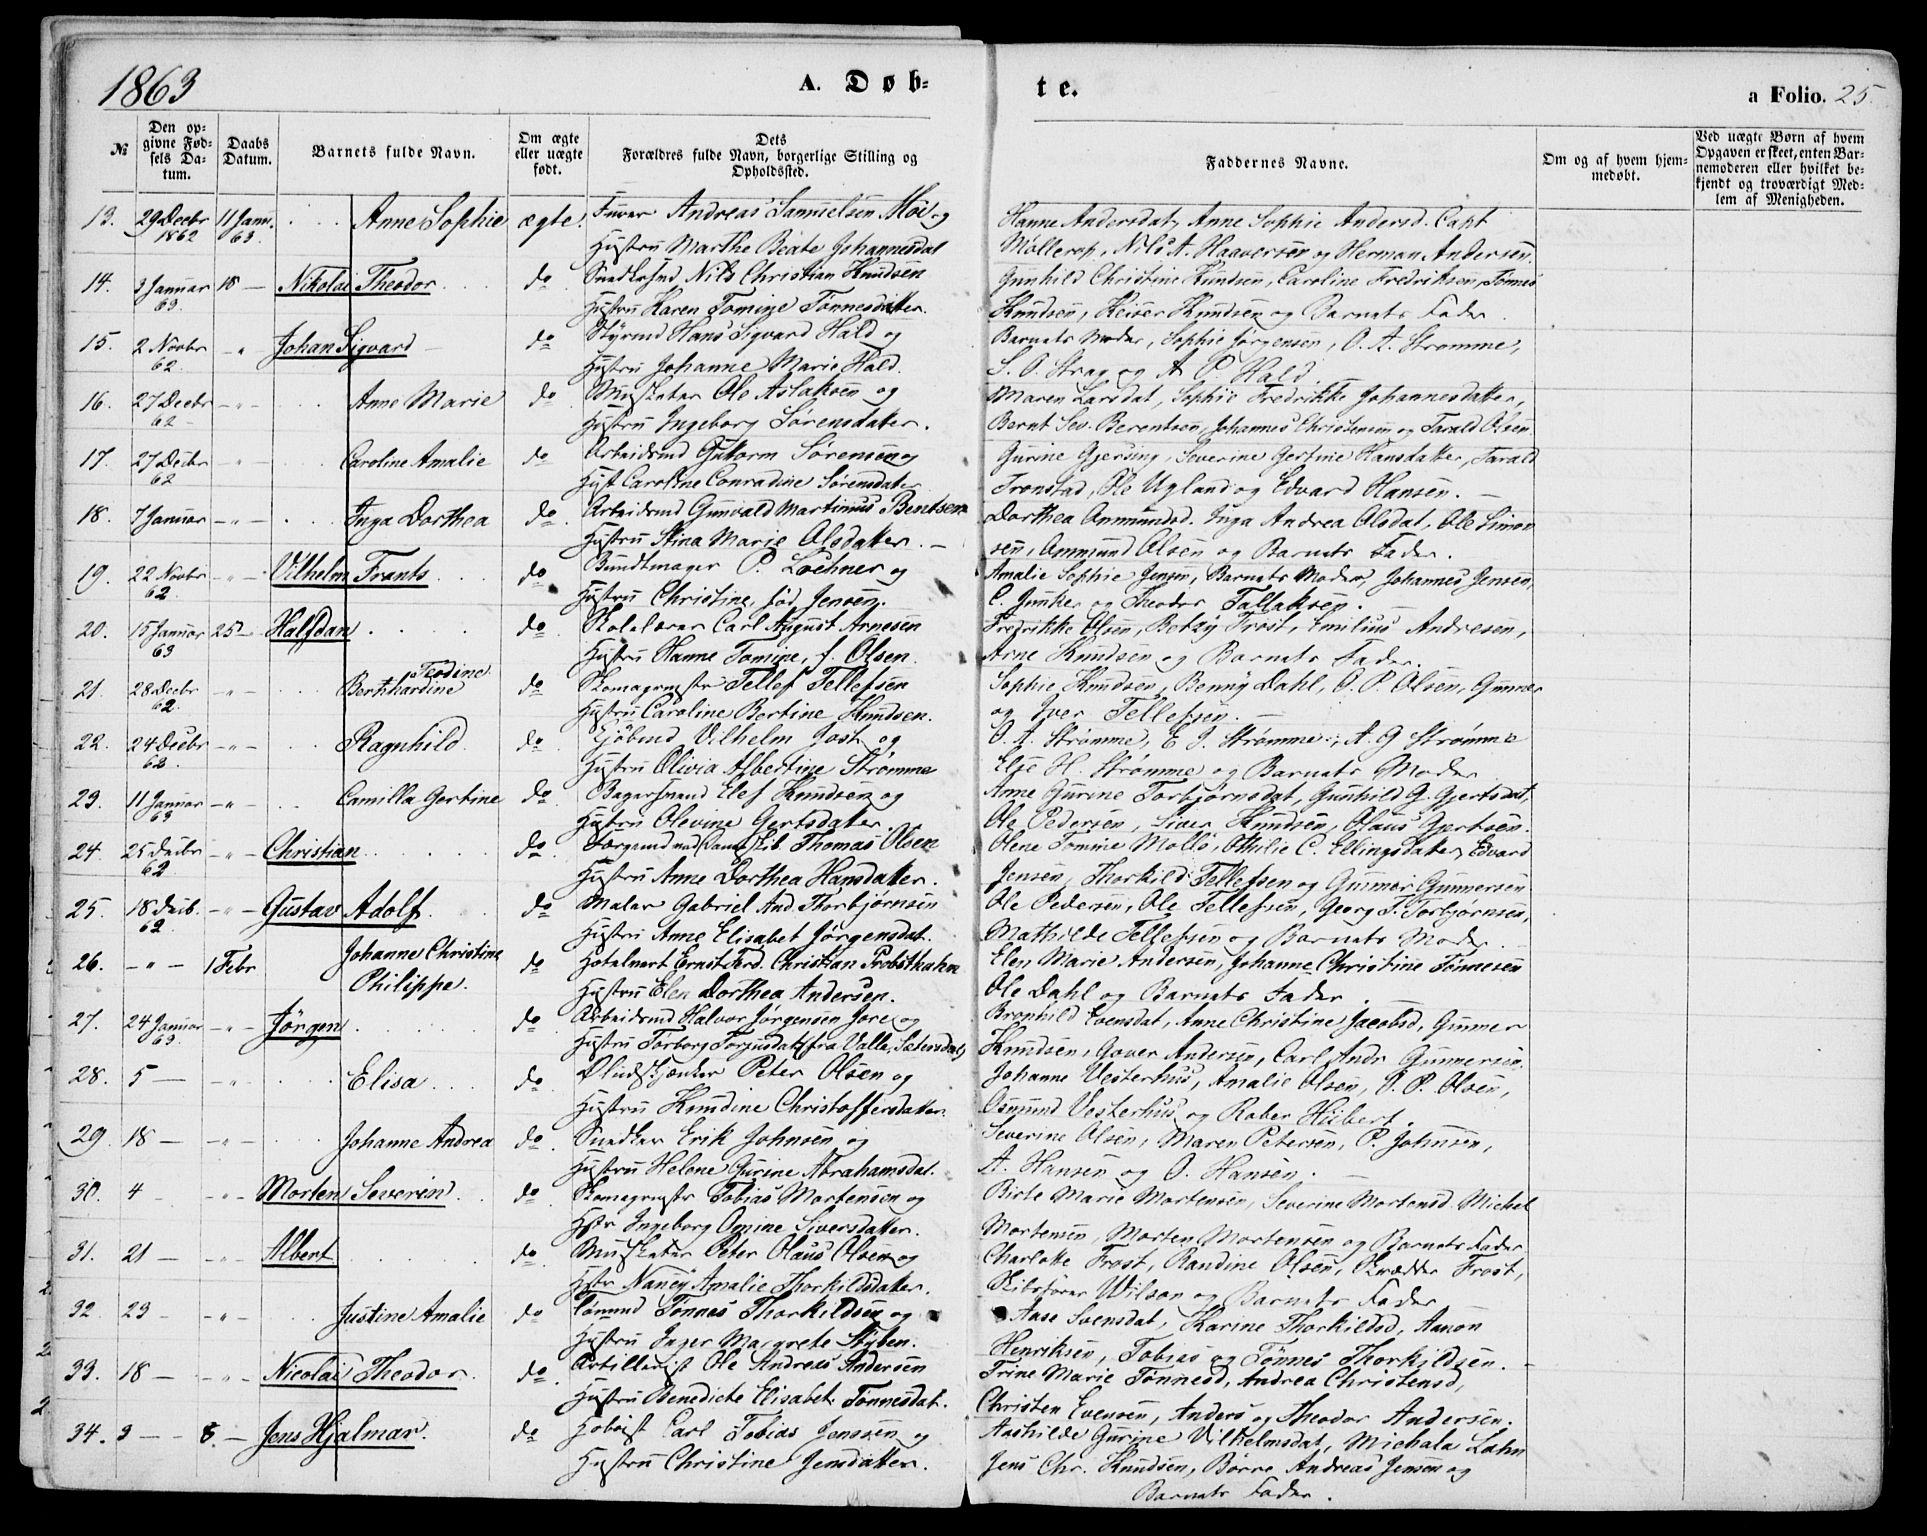 1863
A. Døb-
te.
a Folio. 25.
№
Den op-
givne Fød-
sels Da-
tum.
Daabs
Datum.
Barnets fulde Navn.
Om ægte
eller uægte
født.
Dets
Forældres fulde Navn, borgerlige Stilling og
Opholdssted.
Faddernes Navne.
Om og af hvem hjem-
medøbt.
Ved uægte Børn af hvem
Opgaven er skeet, enten Bar-
nemoderen eller hvilket be-
kjendt og troværdigt Med-
lem af Menigheden.
13. 29 Decbr 1862 11 Janu. 63. Anne Sophie ægte. Andreas Samuelsen Moi og
Hustru Marthe Beate Johannesdat
Hanne Andersdat, Anne Sophie Andersd. Capt
Møllerop, Nils A. Haaversen og Herman Andersen.
14. 3 Januar 63. 18 — Nikolai Theodor do Nils Christian Knudsen
Hustru Karen Tomine Tønnesdatter.
Gunhild Christine Knudsen, Caroline Fredriksen, Tønnes
Knudsen, Reiser Knudsen og Barnets Fader.
15. 2 Novbr 62. -"- Johan Sigvard do Styrmd Hans Sigvard Hald og
Hustru Johanne Marie Hald.
Barnets Moder, Sophie Jørgensen, O. A. Strømme,
S. O. Strag og A. P. Hald.
16. 27 Decbr 62 -"- Anne Marie do Musketer Ole Aslaksen og
Hustru Ingeborg Sørensdatter.
Maren Larsdat, Sophie Fredrikke Johannesdatter,
Bernt Sev. Berentsen, Johannes Christensen og Tarald Olsen
17. 27 Decbr 62 -"- Caroline Amalie do Arbeidsmd Guttorm Sørensen og
Hust Caroline Conradine Sørensdatter
Gurine Gjersing, Severine Gertine Hansdatter, Tarald
Tronstad, Ole Ugland og Edvard Hansen.
18. 7 Januar -"- Inga Dorthea do. Arbeidsmd Gunvald Martinius Bentsen
Hustru Stina Marie Olsdatter.
Dorthea Ommundsd. Inga Andrea Olsdat, Ole Simon-
sen, Ommund Olsen og Barnets Fader.
19. 22 Novbr 62 -"- Vilhelm Frants do Bundtmager P. Lochner og
Hustru Christine, fød Jensen.
Amalie Sophie Jensen, Barnets Moder, Johannes Jensen,
C. Junker og Theodor Tallaksen.
20. 15 Januar 63 25 — Halfdan do Skolelærer Carl August Arnesen
Hustru Hanne Tomine, f. Olsen.
Fredrikke Olsen, Betzy Frost, Emilius Andresen,
Arne Knudsen og Barnets Fader.
21. 28 Decbr 62. -"- Bernhardine Teodine do Skomagermstr Tellef Tellefsen
Hustru Caroline Bertine Knudsen.
Sophie Knudsen, Benny Dahl, O. P. Olsen, Gunner
og Iver Tellefsen.
22. 24 Decbr 62. -"- Ragnhild. do Kjøbmd Vilhelm Jost og
Hustru Olivia Albertine Strømme
O. A. Strømme, E. J. Strømme, A. G Strømme
Else H. Strømme og Barnets Moder
23. 11 Januar 63 -"- Camilla Gertine do Bagersvend Elef Knudsen og
Hustru Olevine Gertsdatter
Anne Gurine Torbjørnsdat, Gunhild G. Gjertsdat,
Ole Pedersen, Siver Knudsen, Olaus Gjertsen.
24. 25 Decbr 62 -"- Christian do Thomas Olsen
Hustru Anne Dorthea Hansdatter.
Olene Tomine Møllo, Othilie C. Ellingsdatter, Edvard
Jensen, Thorkild Tellefsen og Gunner Gunnersen
25. 18 Decb. 62. -"- Gustav Adolf. do Maler Gabriel And. Thorbjørnsen
Hustru Anne Elisabet Jørgensdat.
Ole Pedersen, Ole Tellefsen, Georg F. Torbjørnsen,
Mathilde Tellefsen og Barnets Moder.
26. -"- 1 Febr Johanne Christine
Philippe. do Hotelvert Ernst Ferd. Christian Probsthahn
Hustru Elen Dorthea Andersen.
Elen Marie Andersen, Johanne Christine Tønnesen
Ole Dahl og Barnets Fader.
27. 24 Januar 63. -"- Jørgen do Arbeidsmd Halvor Jørgensen Jore og
Hustru Torborg Torjusdat, (fra Valle, Sætersdal)
Bronhild Evensdat, Anne Christine Jacobsd, Gunner
Knudsen, Gover Andersen, Carl Andr Gunnersen.
28. 5 — -"- Elisa do Peter Olsen og
Hustru Knudine Christoffersdatter.
Johanne Vesterhus, Amalie Olsen, O. P. Olsen,
Osmund Vesterhus og Rober Hübert.
29. 18 — -"- Johanne Andrea do. Snedker Erik Johnsen og
Hustru Helene Gurine Abrahamsdat.
Severine Olsen, Maren Petersen, P. Johnsen,
A. Hansen og O. Hansen.
30. 4 -"- Morten Severin. do Skomagermstr Tobias Mortensen og
Hstr Ingeborg Omine Siversdatter.
Birte Marie Mortensen, Severine Mortensd. Michel
Mortensen, Morten Mortensen og Barnets Fader
31. 21 — -"- Albert do Musketer Peter Olaus Olsen og
Hstr Nancy Amalie Thorkildsdatter.
Charlotte Frost, Randine Olsen, Skrædder Frost,
Skibsfører Wilson og Barnets Fader
32. 23 -"- Justine Amalie do Tømmd Tønnes Thorkildsen og
Hustru Inger Margrete Styben.
Aase Svensdat, Karine Thorkildsd, Aanon
Henriksen, Tobias og Tønnes Thorkildsen.
33. 18 — -"- Nicolai Theodor. do Artillerist Ole Andreas Andersen
Hustru Benedicte Elisabet Tønnesdat.
Trine Marie Tønnesd, Andrea Christensd,
Christen Evensen, Anders og Theodor Andersen.
34. 3 — 8. — Jens Hjalmar. do Hoboist Carl Tobias Jenssen og
Hustru Christine Jensdatter.
Aashilde Gurine Vilhelmsdat, Michala Lahn
Jens Chr. Knudsen, Børre Andreas Jensen og
Barnets Fader.